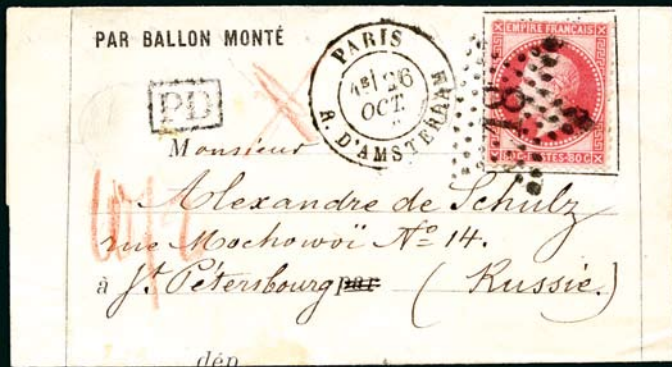 PAR BALLON MONTÉ
PARIS
26
OCT.
R. D'AMSTERDAM
EMPIRE FRANÇAIS
80C POSTES 80C
18
PD
Monsieur
Alexandre de Schulz
rue Mochowoï Nº 14.
à St Pétersbourg par (Russie.)
dép